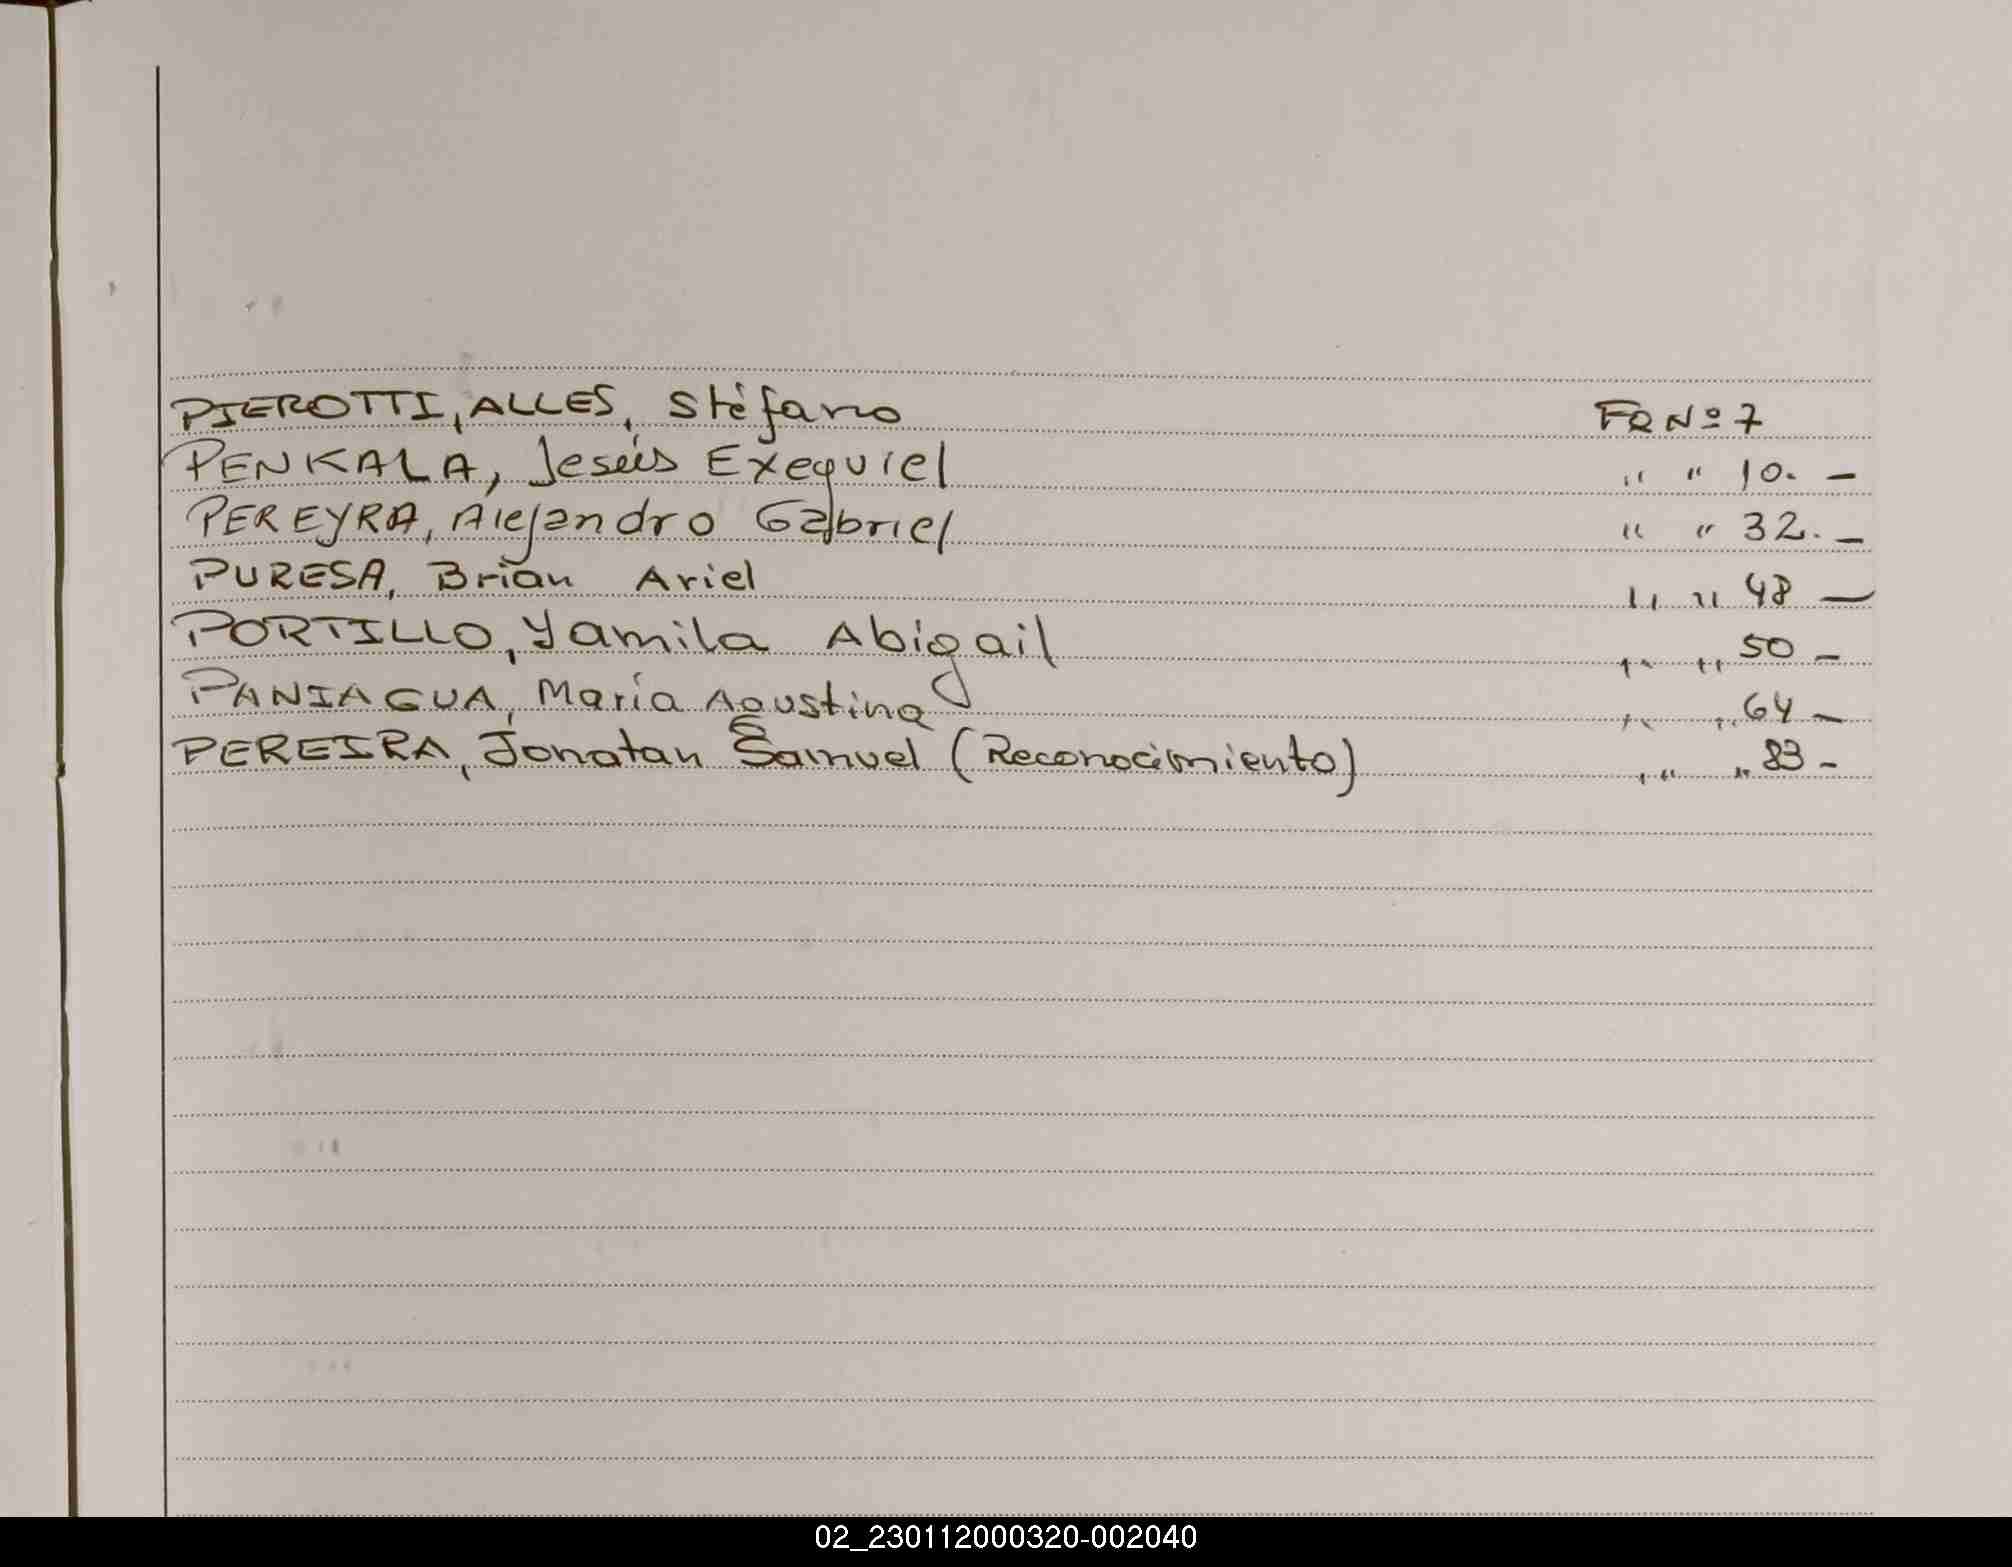 PIEROTTI, ALLES, Stéfano FQ Nº 7
PENKALA, Jesús Exequiel " " 10. -
PEREYRA, Alejandro Gabriel " " 32. -
PURESA, Brian Ariel " " 48 -
PORTILLO, Yamila Abigail " " 50 -
PANIAGUA, María Agustina " " 64 -
PEREIRA, Jonatan Samuel (Reconocimiento) " " 83 -
02_230112000320-002040